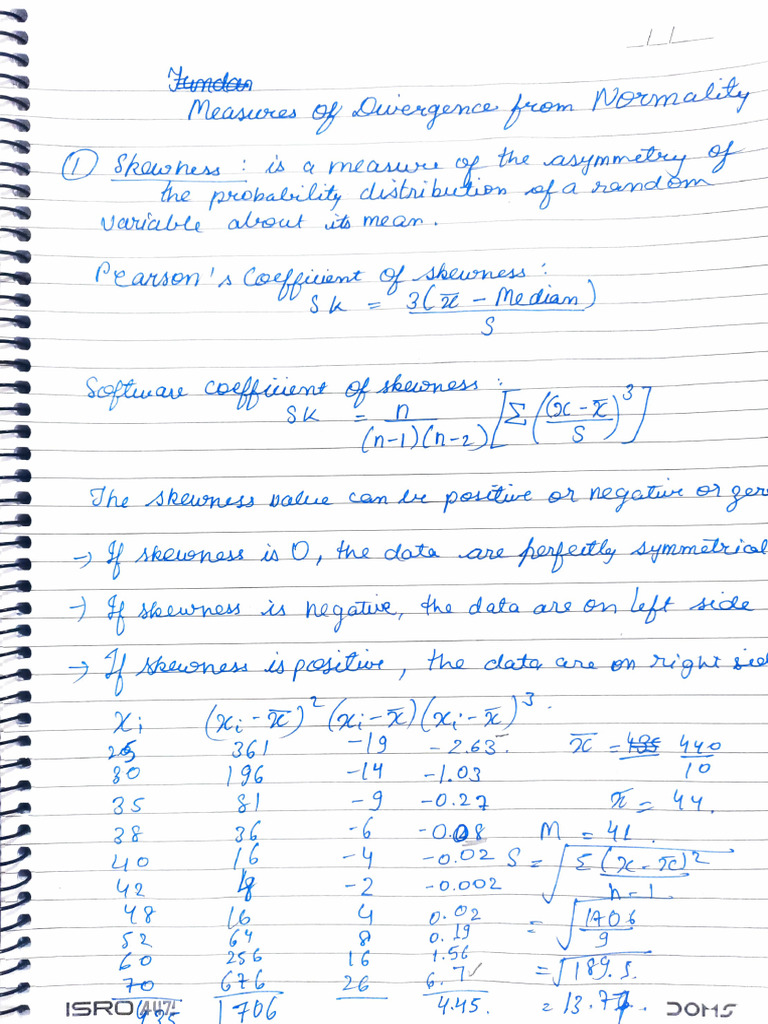 Measures of Divergence from Normality
① Skewness : is a measure of the asymmetry of
the probability distribution of a random
variable about its mean.
Pearson's Coefficient of skewness :
Sk = 3(x̄ - Median)
S
Software coefficient of skewness :
SK = n / (n-1)(n-2) [Σ ((x - x̄) / S)³]
The skewness value can be positive or negative or zer
→ If skewness is 0, the data are perfectly symmetrical
→ If skewness is negative, the data are on left side
→ If skewness is positive, the data are on right sid
xᵢ (xᵢ - x̄)² (xᵢ - x̄) (xᵢ - x̄)³.
25 361 -19 -2.63 x̄ = 440 / 10
30 196 -14 -1.03
35 81 -9 -0.27 x̄ = 44.
38 36 -6 -0.08 M = 41.
40 16 -4 -0.02 S = √(Σ(x - x̄)² / n-1)
42 4 -2 -0.002
48 16 4 0.02 = √(1706 / 9)
52 64 8 0.19
60 256 16 1.56 = √189.5.
70 676 26 6.7 ✓
1706 4.45. = 13.77.
ISRO DOMS